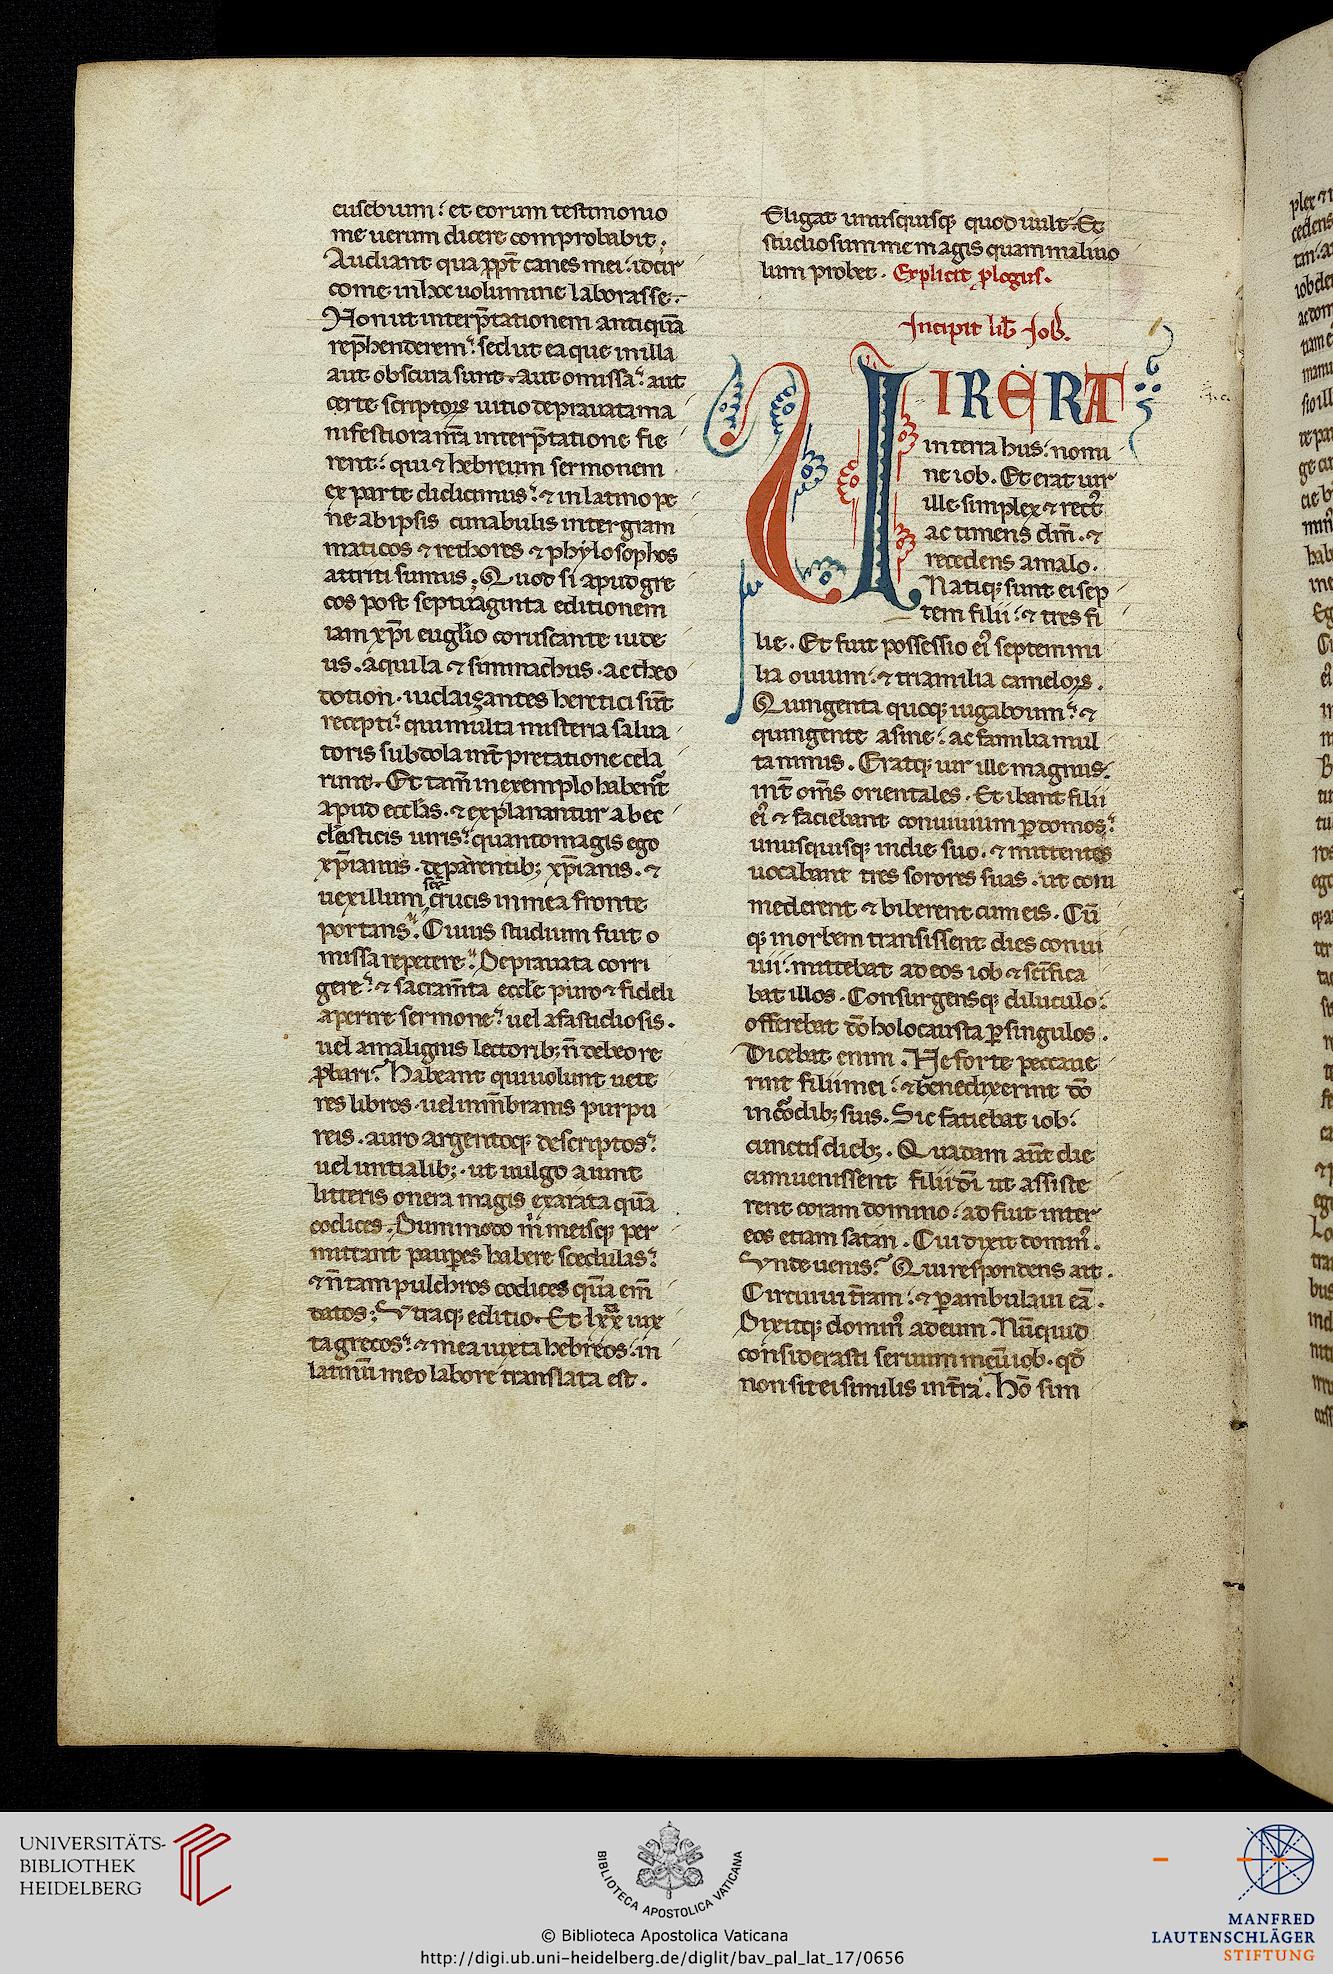 eusebium: et eorum testimonio
me uerum dicere comprobabit.
Audiant qua ꝓpt̄ canes mei: idcir
co me in hoc uolumine laborasse.
Non ut interp̄tationem antiquā
rep̄henderem: sed ut ea que in illa
aut obscura sunt. aut omissa: aut
certe scriptoꝝ uitio deprauata ma
nifestiora nr̄a interp̄tatione fie
rent: qui ⁊ hebreum sermonem
ex parte didicimus: ⁊ in latino pe
ne ab ipsis cunabulis inter gram
maticos ⁊ rethores ⁊ phylosophos
attriti sumus. Quod si apud gre
cos post septuaginta editionem
iam xp̄i euglio coruscante iude
us. aquila ⁊ simmachus. ac theo
dotion. iudaizantes heretici sūt
recepti: qui multa misteria salua
toris subdola int̄pretatione cela
runt. Et tam̄ in exemplo habent̄
apud eccl̄as. ⁊ explanantur ab ec
cl̄asticis uiris: quanto magis ego
xp̄ianus. de parentib; xp̄ianis. ⁊
uexillum scē crucis in mea fronte
portans: Cuius studium fuit o
missa repetere: Deprauata corri
gere: ⁊ sacram̄ta eccl̄e puro ⁊ fideli
aperire sermone: uel a fastidiosis.
uel a malignis lectorib; n̄ debeo re
ꝓbari: Habeant qui uolunt uete
res libros. uel in mēbranis purpu
reis. auro argentoqꝫ descriptos:
uel untialib;. ut uulgo aiunt
litteris onera magis exarata quā
codices. Dummodo m̄ meisqꝫ per
mittant paupes habere scedulas:
⁊ n̄ tam pulchros codices quā em̄
datos: Vtraqꝫ editio. Et lxx iux
ta grecos: ⁊ mea iuxta hebreos: in
latinū meo labore translata est.
Eligat unusquisqꝫ quod uult. Et
studiosum me magis quam maliuo
lum probet. Explicit ꝓlogus.
Incipit lib̄ Iob.
UIR ERAT
in terra hus: nomi
ne iob. Et erat uir
ille simplex ⁊ rect᷒
ac timens dm̄. ⁊
recedens a malo.
Natiqꝫ sunt ei sep
tem filii: ⁊ tres fi
lie. Et fuit possessio ei᷒ septem mi
lia ouium: ⁊ tria milia cameloꝝ.
Quingenta quoqꝫ iuga boum: ⁊
quingente asine: ac familia mul
ta nimis. Eratqꝫ uir ille magnus
int̄ om̄s orientales. Et ibant filii
ei᷒ ⁊ faciebant conuiuium ꝑ domos:
unusquisqꝫ in die suo. ⁊ mittentes
uocabant tres sorores suas. ut com
mederent ⁊ biberent cum eis. Cū
qꝫ in orbem transissent dies conui
uii: mittebat ad eos iob ⁊ scīfica
bat illos. Consurgensqꝫ diluculo:
offerebat dō holocausta ꝑ singulos.
Dicebat enim. Ne forte peccaue
rint filii mei: ⁊ benedixerint dō
in cordib; suis. Sic fatiebat iob:
cunctis dieb;. Quadam aūt die
cum uenissent filii di ut assiste
rent coram domino: adfuit inter
eos etiam satan. Cui dixit domin᷒.
Vnde uenis: Qui respondens ait.
Circuiui t̄ram: ⁊ ꝑambulaui eā.
Dixitqꝫ domin᷒ ad eum. Nūcquid
considerasti seruum meū iob. qđ
non sit ei similis in t̄ra. Hō sim
UNIVERSITÄTS-
BIBLIOTHEK
HEIDELBERG
BIBLIOTECA APOSTOLICA VATICANA
© Biblioteca Apostolica Vaticana
http://digi.ub.uni-heidelberg.de/diglit/bav_pal_lat_17/0656
MANFRED
LAUTENSCHLÄGER
STIFTUNG